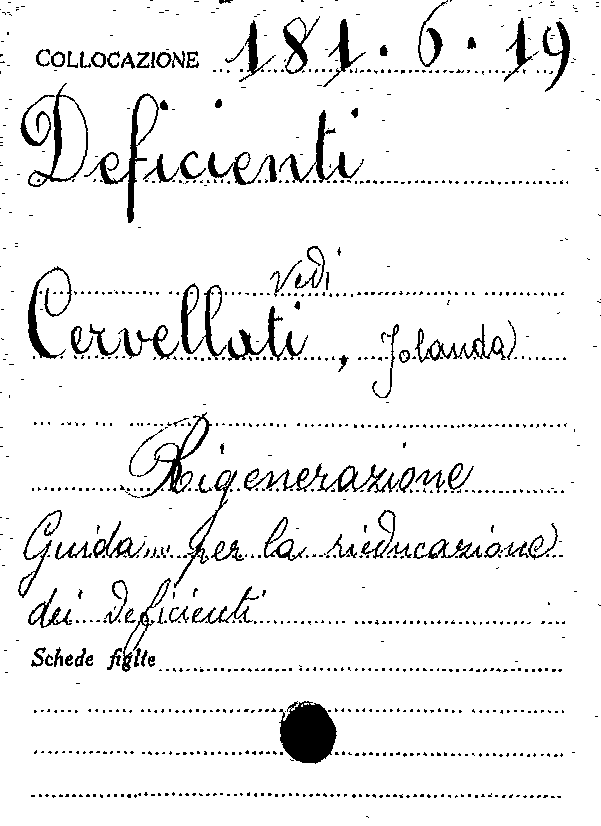 COLLOCAZIONE 181.6.19
Deficienti
vedi
Cervellati, Jolanda
Rigenerazione
Guida... per la rieducazione
dei deficienti
Schede figlie